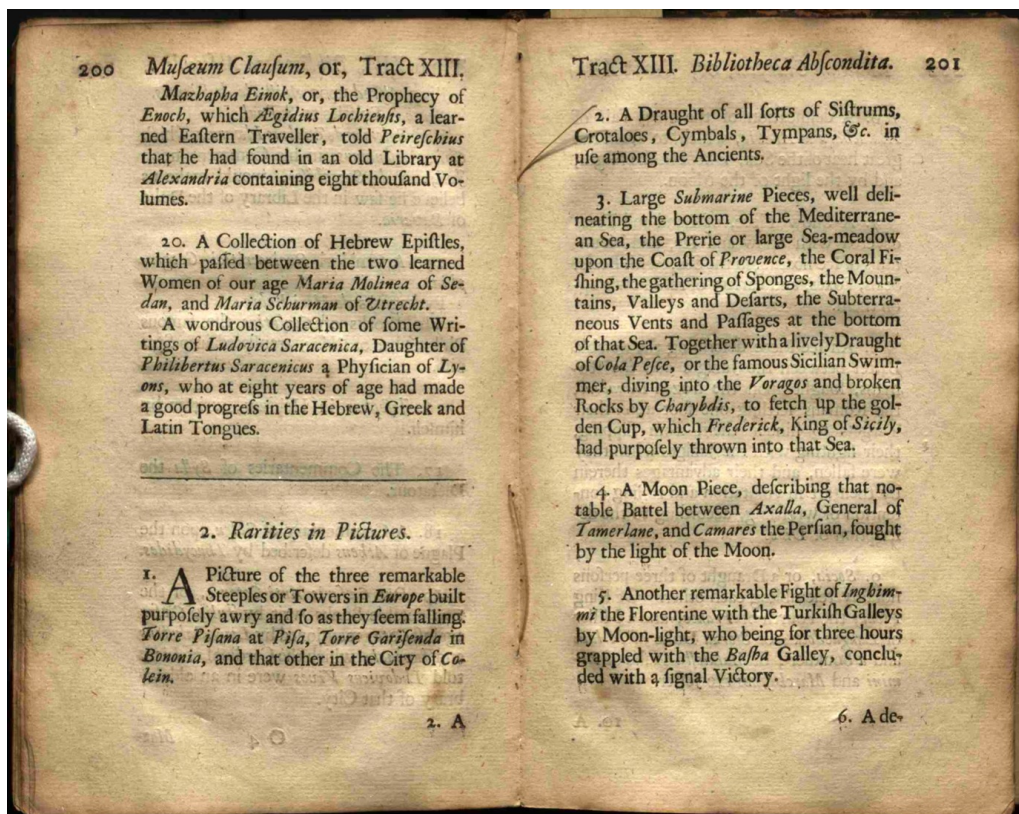 200 Muſæum Clauſum, or, Tract XIII.
Mazhapha Einok, or, the Prophecy of
Enoch, which Ægidius Lochienſis, a lear-
ned Eaſtern Traveller, told Peireſchius
that he had found in an old Library at
Alexandria containing eight thouſand Vo-
lumes.
20. A Collection of Hebrew Epiſtles,
which paſſed between the two learned
Women of our age Maria Molinea of Se-
dan, and Maria Schurman of Utrecht.
A wondrous Collection of ſome Wri-
tings of Ludovica Saracenica, Daughter of
Philibertus Saracenicus a Phyſician of Ly-
ons, who at eight years of age had made
a good progreſs in the Hebrew, Greek and
Latin Tongues.
2. Rarities in Pictures.
1. A Picture of the three remarkable
Steeples or Towers in Europe built
purpoſely awry and ſo as they ſeem falling.
Torre Piſana at Piſa, Torre Gariſenda in
Bononia, and that other in the City of Co-
lein.
2. A
Tract XIII. Bibliotheca Abſcondita. 201
2. A Draught of all ſorts of Siſtrums,
Crotaloes, Cymbals, Tympans, &c. in
uſe among the Ancients.
3. Large Submarine Pieces, well deli-
neating the bottom of the Mediterrane-
an Sea, the Prerie or large Sea-meadow
upon the Coaſt of Provence, the Coral Fi-
ſhing, the gathering of Sponges, the Moun-
tains, Valleys and Deſarts, the Subterra-
neous Vents and Paſſages at the bottom
of that Sea. Together with a lively Draught
of Cola Peſce, or the famous Sicilian Swim-
mer, diving into the Voragos and broken
Rocks by Charybdis, to fetch up the gol-
den Cup, which Frederick, King of Sicily,
had purpoſely thrown into that Sea.
4. A Moon Piece, deſcribing that no-
table Battel between Axalla, General of
Tamerlane, and Camares the Perſian, fought
by the light of the Moon.
5. Another remarkable Fight of Inghim-
mi the Florentine with the Turkiſh Galleys
by Moon-light, who being for three hours
grappled with the Baſha Galley, conclu-
ded with a ſignal Victory.
6. A de-